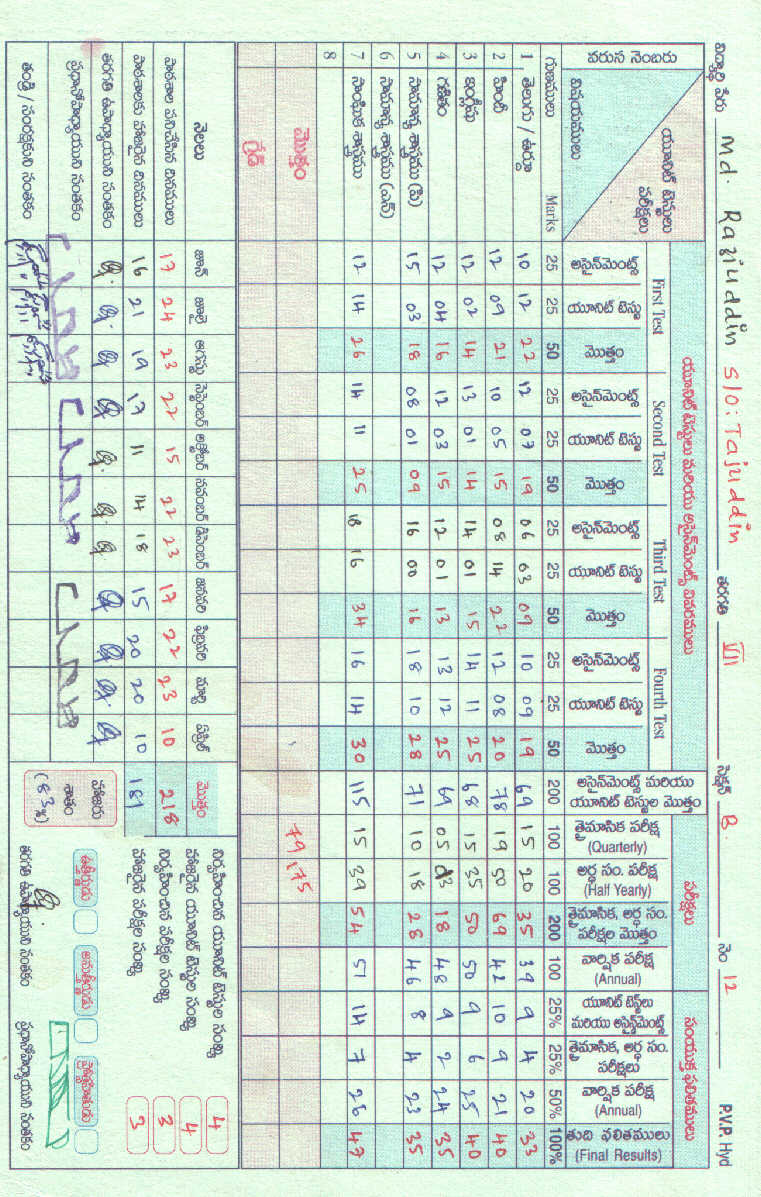 విద్యార్థి పేరు Md. Raziuddin S/O: Tajuddin తరగతి VII సెక్షన్ B. నెం 12 P.W.P. Hyd
వరుస నెంబరు యూనిట్ టెస్టులు పరీక్షలు విషయములు యూనిట్ టెస్టులు మరియు అసైన్‌మెంట్స్ వివరములు పరీక్షలు సంయుక్త ఫలితములు
First Test Second Test Third Test Fourth Test
అసైన్‌మెంట్స్ యూనిట్ టెస్టు మొత్తం అసైన్‌మెంట్స్ యూనిట్ టెస్టు మొత్తం అసైన్‌మెంట్స్ యూనిట్ టెస్టు మొత్తం అసైన్‌మెంట్స్ యూనిట్ టెస్టు మొత్తం అసైన్‌మెంట్స్ మరియు యూనిట్ టెస్టుల మొత్తం త్రైమాసిక పరీక్ష (Quarterly) అర్ధ సం. పరీక్ష (Half Yearly) త్రైమాసిక, అర్ధ సం. పరీక్షల మొత్తం వార్షిక పరీక్ష (Annual) యూనిట్ టెస్ట్‌లు మరియు అసైన్‌మెంట్స్ త్రైమాసిక, అర్ధ సం. పరీక్షలు వార్షిక పరీక్ష (Annual) తుది ఫలితములు (Final Results)
గుణములు Marks 25 25 50 25 25 50 25 25 50 25 25 50 200 100 100 200 100 25% 25% 50% 100%
1 తెలుగు / ఉర్దూ 10 12 22 12 07 19 06 03 09 10 09 19 69 15 20 35 39 9 4 20 33
2 హిందీ 12 09 21 10 05 15 08 14 22 12 08 20 78 19 50 69 42 10 9 21 40
3 ఇంగ్లీషు 12 02 14 13 01 14 14 01 15 14 11 25 68 15 35 50 50 9 6 25 40
4 గణితం 12 04 16 12 03 15 12 01 13 13 12 25 69 05 18 48 9 2 24 35
5 సామాన్య శాస్త్రము (పి) 15 03 18 08 01 09 16 00 16 18 10 28 71 10 18 28 46 8 4 23 35
6 సామాన్య శాస్త్రము (ఎన్)
7 సాంఘిక శాస్త్రము 12 14 26 14 11 25 18 16 34 16 14 30 115 15 39 54 51 14 7 26 47
8
మొత్తం 79 175
గ్రేడ్
నెలలు జూన్ జూలై ఆగస్టు సెప్టెంబర్ అక్టోబర్ నవంబర్ డిసెంబర్ జనవరి ఫిబ్రవరి మార్చి ఏప్రిల్ మొత్తం
పాఠశాల పనిచేసిన దినములు 17 24 23 22 15 22 23 17 22 23 10 218
పాఠశాలకు హాజరైన దినములు 16 21 19 17 11 14 18 15 20 20 10 181
తరగతి ఉపాధ్యాయుని సంతకం
ప్రధానోపాధ్యాయుని సంతకం
తండ్రి / సంరక్షకుని సంతకం
హాజరు శాతం (83%)
నిర్వహించిన యూనిట్ టెస్టుల సంఖ్య 4
హాజరైన యూనిట్ టెస్టుల సంఖ్య 4
నిర్వహించిన పరీక్షల సంఖ్య 3
హాజరైన పరీక్షల సంఖ్య 3
ఉత్తీర్ణుడు అనుత్తీర్ణుడు
తరగతి ఉపాధ్యాయుని సంతకం ప్రధానోపాధ్యాయుని సంతకం